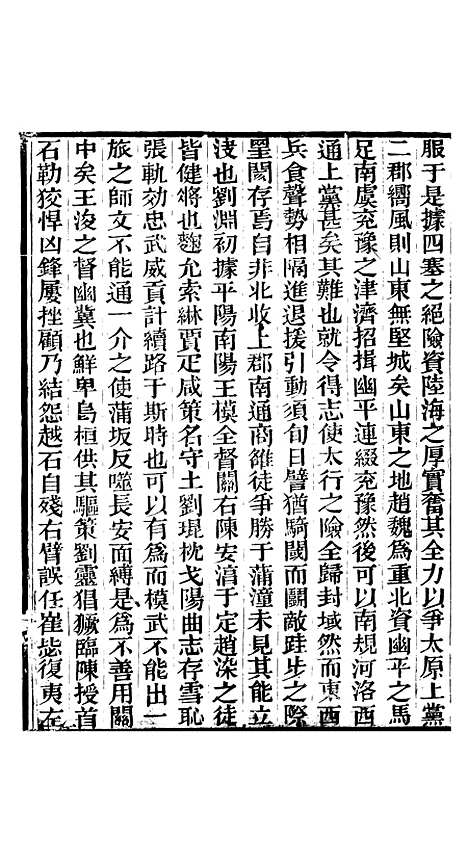 服于是據四塞之絕險資陸海之厚實奮其全力以爭太原上黨
二郡嚮風則山東無堅城矣山東之地趙魏爲重北資幽平之馬
足南虞兖豫之津濟招揖幽平連綴兖豫然後可以南規河洛西
通上黨甚矣其難也就令得志使太行之險全歸封域然而東西
兵食聲勢相隔進退援引動須旬日譬猶騎閾而鬭敵跬步之際
釁閡存焉自非北收上郡南通商雒徒爭勝于蒲潼未見其能立
國也劉淵初據平陽南陽王模全督關右陳安淳于定趙染之徒
皆健將也麴允索綝賈疋咸策名守土劉琨枕戈陽曲志存雪恥
張軌効忠武威貢計續路于斯時也可以有爲而模武不能出一
旅之師文不能通一介之使蒲坂反噬長安面縛是爲不善用關
中矣王浚之督幽冀也鮮卑烏桓供其驅策劉靈猖獗臨陳授首
石勒狡悍凶鋒屢挫顧乃結怨越石自殘右臂誤任崔毖復夷左